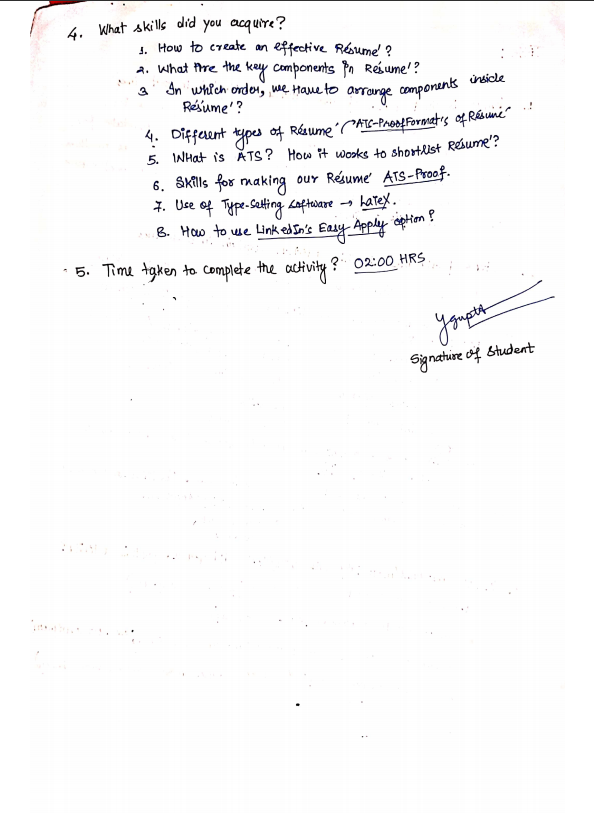 4. What skills did you acquire?
1. How to create an effective Résume'?
2. What Are the key components in Résume'?
3. In which order, we Have to arrange components inside
Résume'?
4. Different types of Résume' (ATS-Proof Format's of Résume'
5. WHat is ATS? How it works to shortlist Résume'?
6. Skills for making our Résume' ATS-Proof.
7. Use of Type-Setting Software → LaTeX.
8. How to use LinkedIn's Easy Apply option?
5. Time taken to complete the activity? 02:00 HRS
Ygupta
Signature of Student